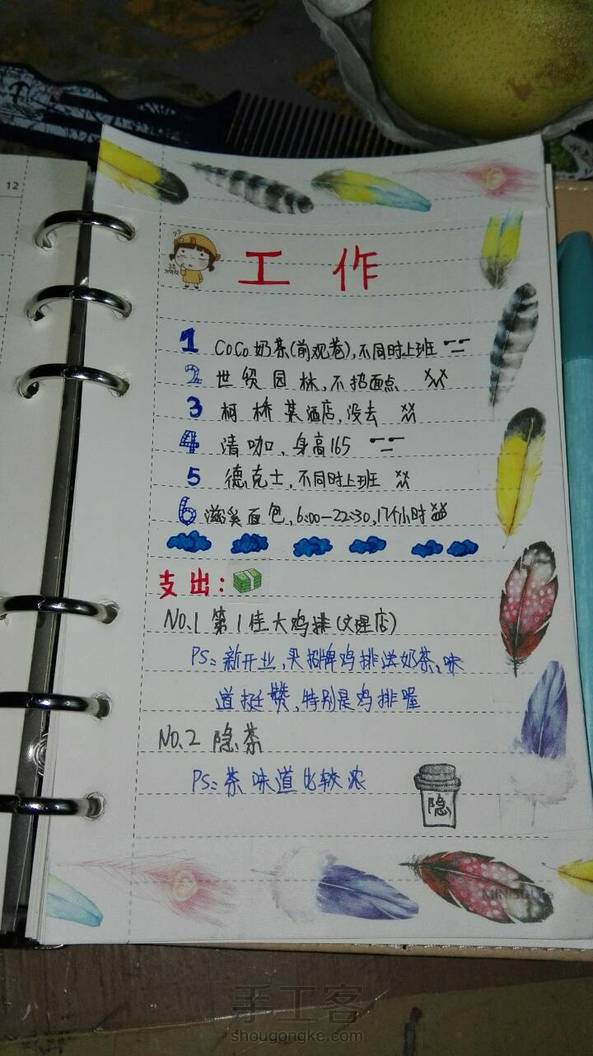 12
工 作
1 CoCo奶茶(前观巷),不同时上班
2 世贸园林,不招面点
3 柯桥某酒店,没去
4 清咖,身高165
5 德克士,不同时上班
6 滋溪面包,6:00-22:30,17个小时
支出:
NO.1 第1佳大鸡排(文理店)
PS:新开业,买招牌鸡排送奶茶,味
道挺赞,特别是鸡排喔
NO.2 隐茶
PS:茶味道比较浓
隐
手工客
shougongke.com